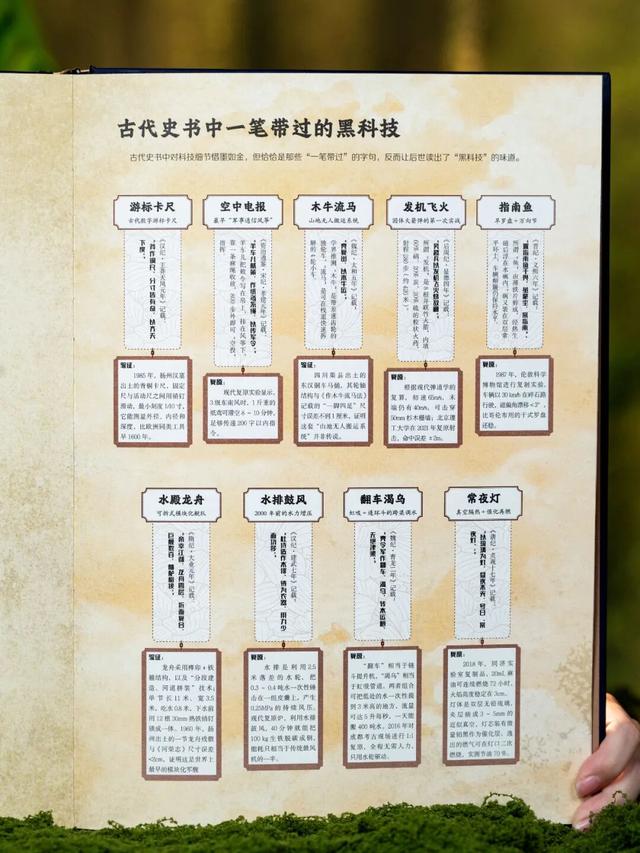 古代史书中一笔带过的黑科技
古代史书中对科技细节惜墨如金，但恰恰是那些“一笔带过”的字句，反而让后世读出了“黑科技”的味道。
游标卡尺
古代数字游标卡尺
《汉纪·王莽天凤元年》记载，
下度。
鉴证：
1985年，扬州汉墓
出土的青铜卡尺，固定
尺与活动尺之间用销钉
滑动，最小刻度1/10寸，
它能测量外径、内径和
深度，比欧洲同类工具
早1600年。
空中电报
最早“军事通信风筝”
记载，
靠一条麻绳收放，800步外即可“空投”
指挥。
复原：
现代复原实验显示，
3级东南风时，1斤重的
纸鸢可滞空8~10分钟，
足够传递200字以内指
令。
木牛流马
山地无人搬运系统
《魏纪·太和五年》记载，
鉴证：
四川渠县出土的
东汉铜车马俑，其轮轴
结构与《作木牛流马法》
记载的“一脚四足”尺
寸误差不到1厘米，证明
这套“山地无人搬运系
统”并非传说。
发机飞火
固体火箭弹的第一次实战
记载，
射程280步（约420米）。
复原：
根据现代弹道学的
复算，初速65m/s，末
端仍有40m/s，可击穿
50mm杉木栅墙；北京理
工大学在2021年复原射
击，命中误差±2m。
指南鱼
旱罗盘＋万向节
《晋纪·义熙六年》记载，
平环上，车辆颠簸仍保持水平。
复原：
1987年，伦敦科学
博物馆进行复制实验，
车辆以30 km/h在碎石路
行驶，磁偏角漂移<2°，
比哥伦布用的干式罗盘
还稳。
水殿龙舟
可折式模块化舰队
《隋纪·大业元年》记载，
鉴证：
龙舟采用榫卯＋铁
箍结构，以及“分段建
造、河道拼装”技术；
单节长11米，宽3.5
米，吃水0.8米，下水前
用12根30mm热铁销钉
锁成一体。1960年，扬
州出土的一节龙舟残骸
与《河渠志》尺寸误差
<2cm，证明这是世界上
最早的模块化军舰
水排鼓风
2000年前的水力增压
《汉纪·建武七年》记载，
“杜诗造作水排，铸为农器，用力少
而功多。”
复原：
水排是利用2.5
米落差的水轮，把
0.3~0.4吨水一次性锤
击在一组皮囊上，产生
0.25MPa的持续风压。
现代复原炉，利用水排
鼓风，40分钟就能把
100kg生铁脱碳成钢，
能耗只相当于传统鼓风
机的一半。
翻车渴乌
虹吸＋连环斗的跨渠调水
《魏纪·青龙二年》记载，
复原：
“翻车”相当于链
斗提升机，“渴乌”相当
于虹吸管道，两者组合
可把低处的水一次性提
到3米高的地方，流量
可达5升每秒，一天能
搬400吨水。2016年时
成都考古现场进行1:1
复原，全程无需人力，
只用水轮驱动。
常夜灯
真空隔热＋催化再燃
《唐纪·贞观十七年》记载，
夜灯。”
复原：
2018年，同济实
验室复制品，20mL麻
油可连续燃烧72小时，
火焰高度稳定在3cm。
灯体是双层无铅琉璃，
夹层抽成3~5mm的
近似真空，灯芯装有微
量铂黑作为催化层，逸
出的燃气可在灯口二次燃
烧，实测节油70%。